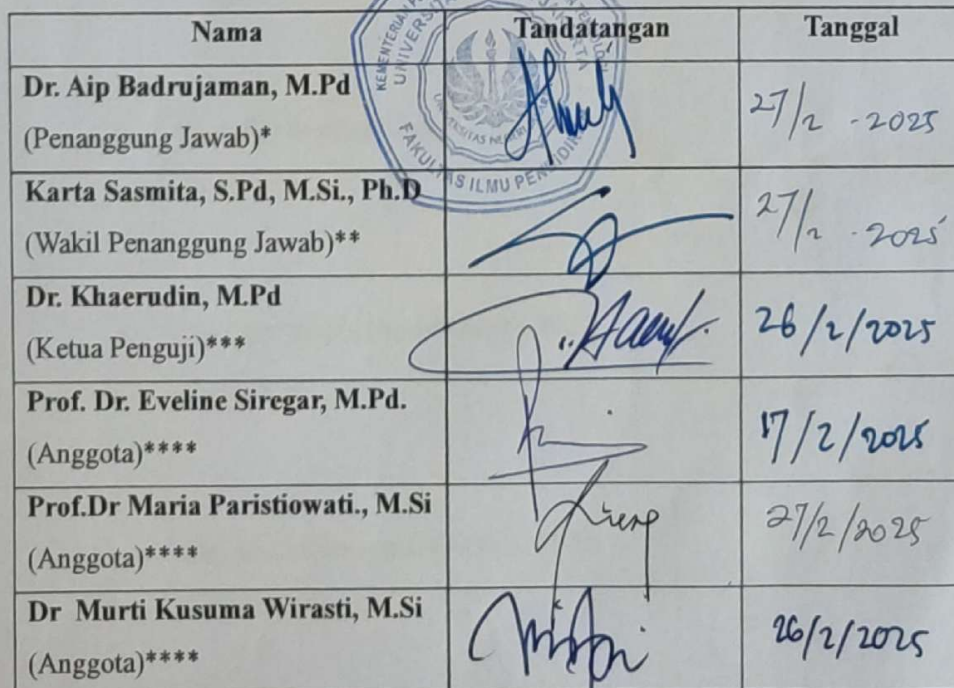 Nama Tandatangan Tanggal
Dr. Aip Badrujaman, M.Pd
(Penanggung Jawab)* 27/2 - 2025
Karta Sasmita, S.Pd, M.Si., Ph.D
(Wakil Penanggung Jawab)** 27/2 - 2025
Dr. Khaerudin, M.Pd
(Ketua Penguji)*** 26/2/2025
Prof. Dr. Eveline Siregar, M.Pd.
(Anggota)**** 17/2/2025
Prof.Dr Maria Paristiowati., M.Si
(Anggota)**** 27/2/2025
Dr Murti Kusuma Wirasti, M.Si
(Anggota)**** 26/2/2025
FAKULTAS ILMU PENDIDIKAN